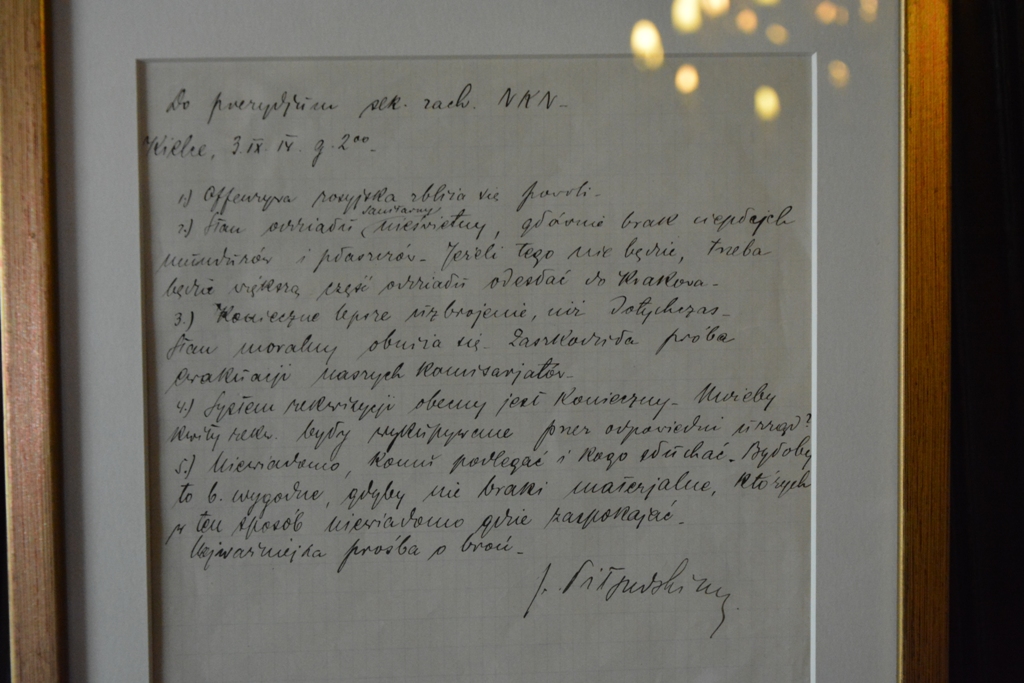 Do prezydjum sek. zach. NKN-
Kielce, 3.IX. g. 2⁰⁰-
1.) Offenzywa rosyjska zbliża się powoli-
2.) Stan oddziału sanitarny nieświetny, głównie brak ciepłych
mundurów i płaszczów- Jeżeli tego nie będzie, trzeba
będzie większą część oddziału odesłać do Krakowa-
3.) Konieczne lepsze uzbrojenie, niż dotychczas-
Stan moralny obniża się- Zaszkodziła próba
ewakuacji naszych komisarjatów-
4.) System rekwizycji obecny jest konieczny-
kwity rekw. były wykupywane przez odpowiedni urząd?
5.) Niewiadomo, komu podlegać i kogo słuchać- Byłoby
to b. wygodne, gdyby nie braki materjalne, których
w ten sposób niewiadomo gdzie zaspokajać-
Najważniejsza prośba o broń-
J. Piłsudski